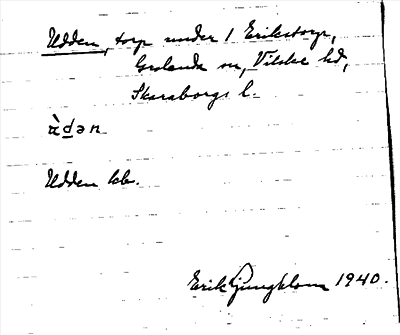 Udden, torp under 1 Erikstorp,
Grolanda sn, Vilske hd,
Skaraborgs l.
ùdən
Udden kb.
Erik Ljungblom 1940.